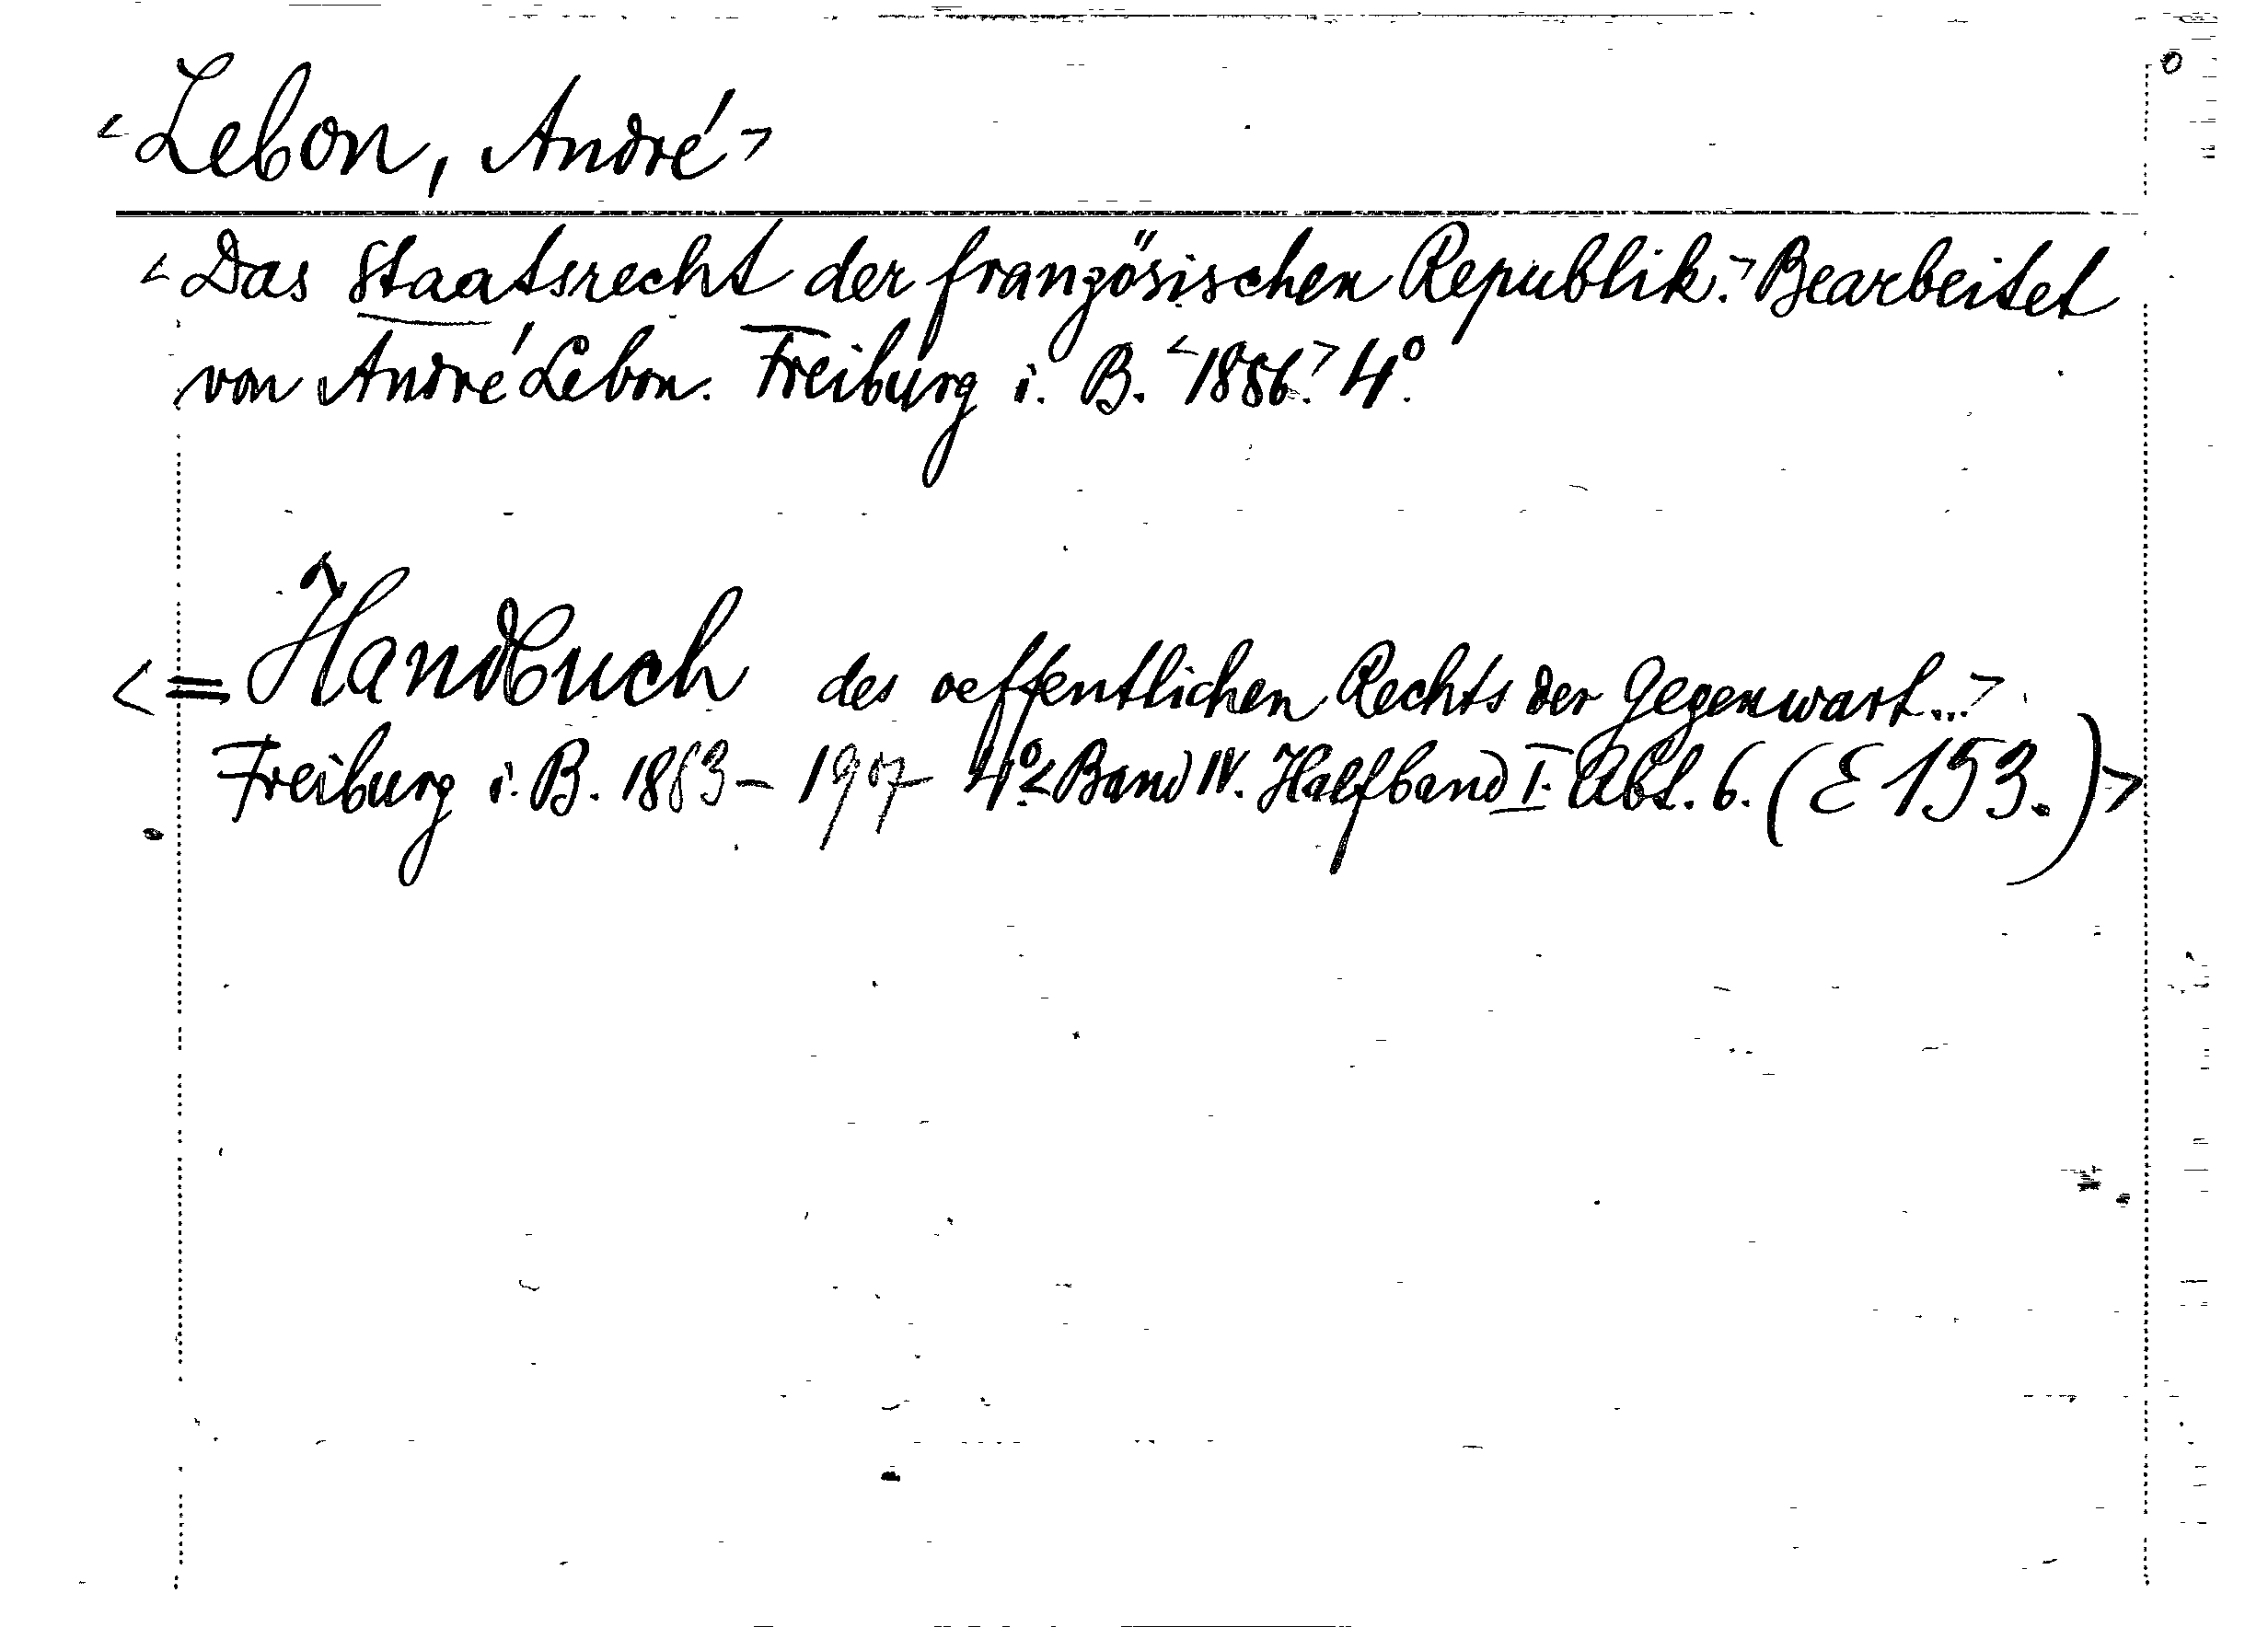 <Lebon, André>
<Das Staatsrecht der französischen Republik.> Bearbeitet
von André Lebon. Freiburg i. B. <1886.> 4°.
<= Handbuch des oeffentlichen Rechts der Gegenwart...>
Freiburg i. B. 1883-1907 4°. <Band IV. Halfband I. Abt. 6. (E 153.)>